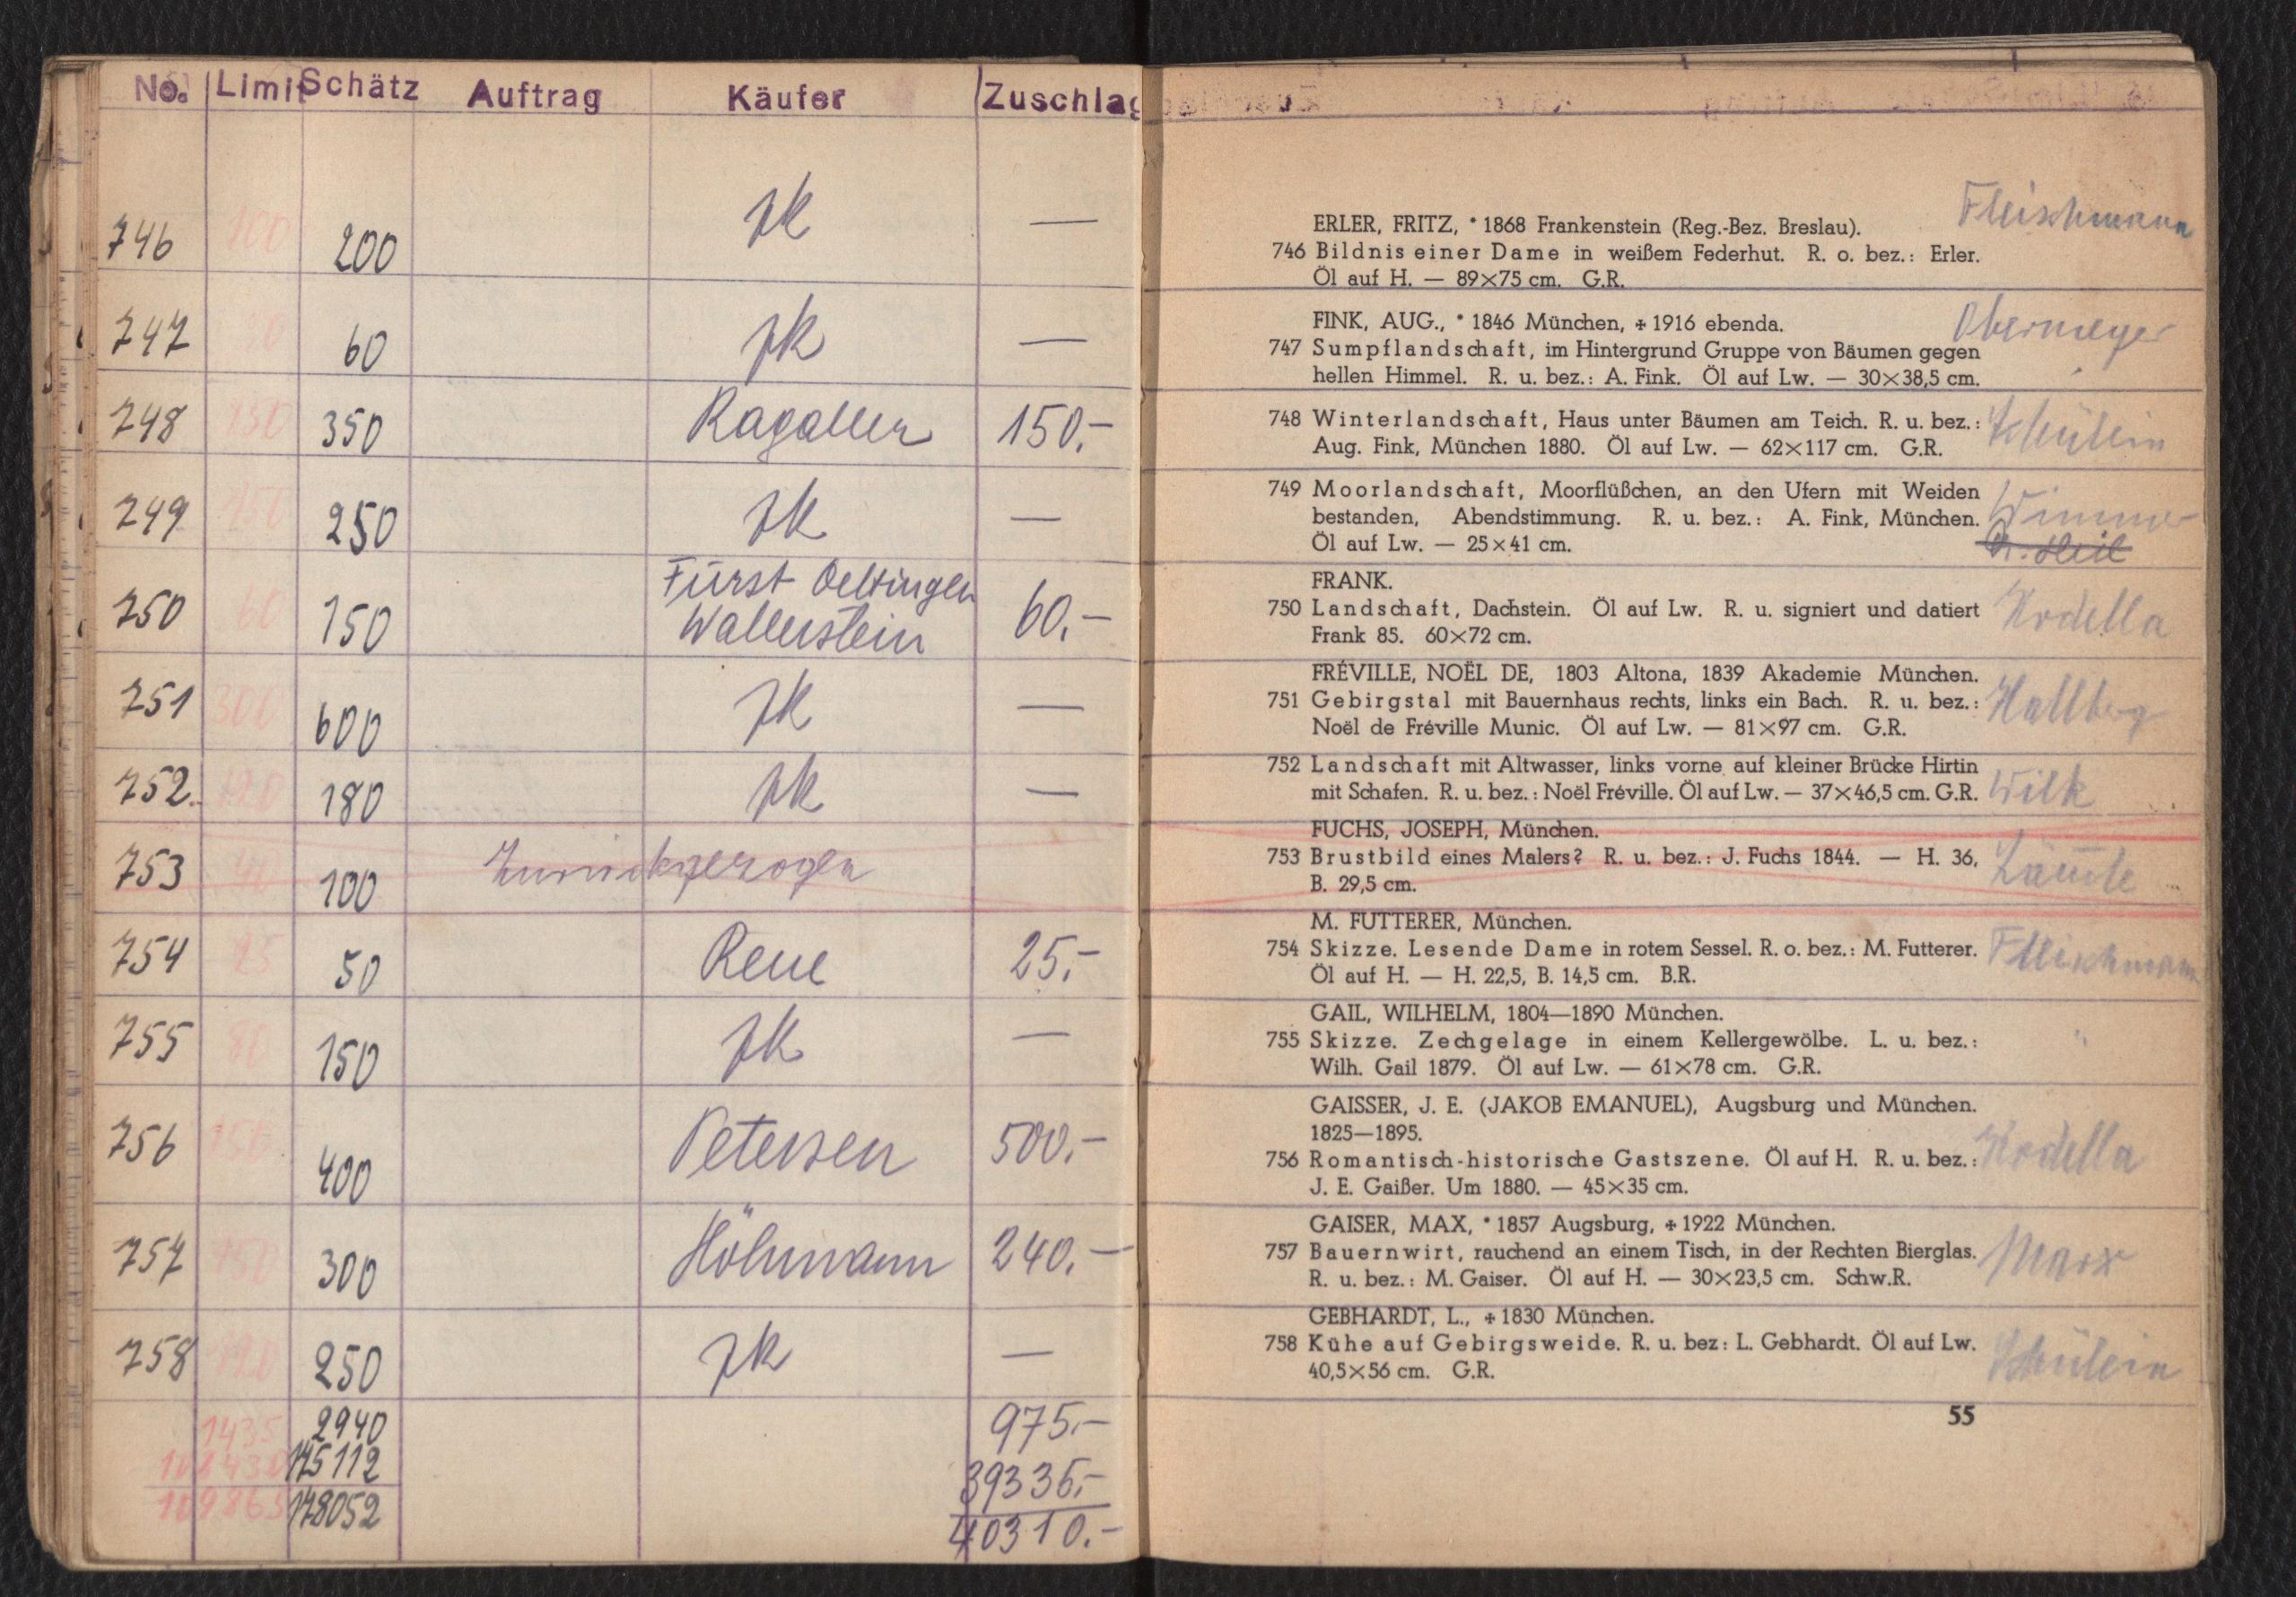 No. Limit Schätz Auftrag Käufer Zuschlag
746 100 200 zk —
747 60 zk —
748 130 350 Ragaller 150.-
749 150 250 zk —
750 60 150 Fürst Oettingen
Wallerstein 60.-
751 300 600 zk —
752. 120 180 zk —
753 100 Zurückgezogen
754 25 50 Rene 25.-
755 80 150 zk —
756 150 400 Petersen 500.-
757 150 300 Höhmann 240.-
758 120 250 zk —
1435 2940 975.-
175112 39335.-
109865 178052 40310.-
Fleischmann
ERLER, FRITZ, * 1868 Frankenstein (Reg.-Bez. Breslau).
746 Bildnis einer Dame in weißem Federhut. R. o. bez.: Erler.
Öl auf H. — 89×75 cm. G.R.
FINK, AUG., * 1846 München, + 1916 ebenda. Obermeyer
747 Sumpflandschaft, im Hintergrund Gruppe von Bäumen gegen
hellen Himmel. R. u. bez.: A. Fink. Öl auf Lw. — 30×38,5 cm.
748 Winterlandschaft, Haus unter Bäumen am Teich. R. u. bez.: Schülein
Aug. Fink, München 1880. Öl auf Lw. — 62×117 cm. G.R.
749 Moorlandschaft, Moorflüßchen, an den Ufern mit Weiden
bestanden, Abendstimmung. R. u. bez.: A. Fink, München. Wimmer
Öl auf Lw. — 25×41 cm.
FRANK.
750 Landschaft, Dachstein. Öl auf Lw. R. u. signiert und datiert Kodella
Frank 85. 60×72 cm.
FRÉVILLE, NOËL DE, 1803 Altona, 1839 Akademie München.
751 Gebirgstal mit Bauernhaus rechts, links ein Bach. R. u. bez.: Hallberg
Noël de Fréville Munic. Öl auf Lw. — 81×97 cm. G.R.
752 Landschaft mit Altwasser, links vorne auf kleiner Brücke Hirtin
mit Schafen. R. u. bez.: Noël Fréville. Öl auf Lw. — 37×46,5 cm. G.R. Wilk
FUCHS, JOSEPH, München.
753 Brustbild eines Malers? R. u. bez.: J. Fuchs 1844. — H. 36,
B. 29,5 cm.
M. FUTTERER, München.
754 Skizze. Lesende Dame in rotem Sessel. R. o. bez.: M. Futterer. Fleischmann
Öl auf H. — H. 22,5, B. 14,5 cm. B.R.
GAIL, WILHELM, 1804—1890 München.
755 Skizze. Zechgelage in einem Kellergewölbe. L. u. bez.: "
Wilh. Gail 1879. Öl auf Lw. — 61×78 cm. G.R.
GAISSER, J. E. (JAKOB EMANUEL), Augsburg und München.
1825—1895.
756 Romantisch-historische Gastszene. Öl auf H. R. u. bez.: Kodella
J. E. Gaißer. Um 1880. — 45×35 cm.
GAISER, MAX, * 1857 Augsburg, + 1922 München.
757 Bauernwirt, rauchend an einem Tisch, in der Rechten Bierglas. Marx
R. u. bez.: M. Gaiser. Öl auf H. — 30×23,5 cm. Schw.R.
GEBHARDT, L., + 1830 München.
758 Kühe auf Gebirgsweide. R. u. bez: L. Gebhardt. Öl auf Lw. Schülein
40,5×56 cm. G.R.
55